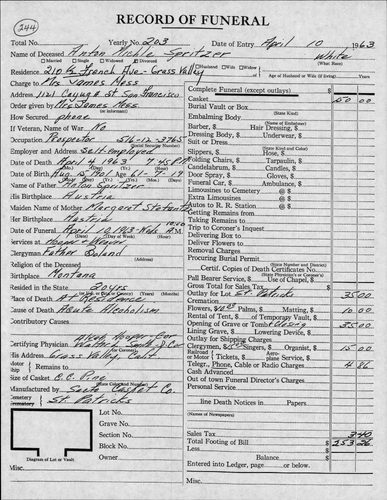 244
RECORD OF FUNERAL
Total No. Yearly No. 203 Date of Entry April 10 1963
Name of Deceased Anton Michle Spritzer White
(What Race)
Married Single Widowed Divorced
Residence 210 1/2 French Ave - Grass Valley
Husband Wife Widow
Age of Husband or Wife (if living)
Charge to Mrs James Moss
Address 1121 St San Francisco
Order given by Mrs James Moss
How Secured phone
If Veteran, of War No
Occupation Prospector 516-12-3765
(Social Security Number)
Employer and Address Self-employed
Date of Death April 4 1963 7:45 P.M.
Date of Birth Aug. 15 1901 Age 61-7-19
Name of Father Anton Spritzer
His Birthplace Austria
Maiden Name of Mother Margaret
Her Birthplace Austria
Date of Funeral April 10 1963 - Wed. 10:00 A.M.
Services at Hooper & Weaver
Clergyman Father Boland
Religion of the Deceased
Birthplace Montana
Resided in the State 20 yrs
Place of Death At Residence
Cause of Death Acute Alcoholism
Contributory Causes
Certifying Physician
His Address Grass Valley, Calif.
Remains to
Size of Casket Pine
Manufactured by Casket Co.
Cemetery St. Patricks
Lot No.
Grave No.
Section No.
Block No.
Owner
Diagram of Lot or Vault
Misc.
Complete Funeral (except outlays) $
Casket 50 00
Burial Vault or Box
(State Kind)
Embalming Body
(Name of Embalmer)
Barber, $ Hair Dressing, $
Dressing Body, $ Underwear, $
Suit or Dress
(State Kind and Color)
Slippers, $ Hose, $
Folding Chairs, $ Tarpaulin, $
Candelabrum, $ Candles, $
Door Spray, $ Gloves, $
Funeral Car, $ Ambulance, $
Limousines to Cemetery @ $
Extra Limousines @ $
Autos to R. R. Station @ $
Getting Remains from
Taking Remains to
Trip to Coroner's Inquest
Delivering Box to
Deliver Flowers to
Removal Charges
Procuring Burial Permit
(State Number and District)
Certif. Copies of Death Certificates No.
Pall Bearer Service, $ Use of Chapel, $
Gross Total for Sales Tax
Outlay for Lot St. Patricks 35 00
Flowers, $ Palms, $ Matting, $ 10 00
Rental of Tent, $ of Temporary Vault, $
Opening of Grave or Tomb Closing 35 00
Lining Grave, $ Lowering Device, $
Outlay for Shipping Charges
Clergymen, $ Singers, $ Organist, $ 15 00
Railroad or Motor Tickets, $ Aeroplane Service, $
Telegr., Phone, Cable or Radio Charges 4 86
Cash Advanced
Out of town Funeral Director's Charges
Personal Service
line Death Notices in Papers
(Names of Newspapers)
Sales Tax 3 40
Total Footing of Bill $ 253 26
Less
Balance $
Entered into Ledger, page or below.
Misc.